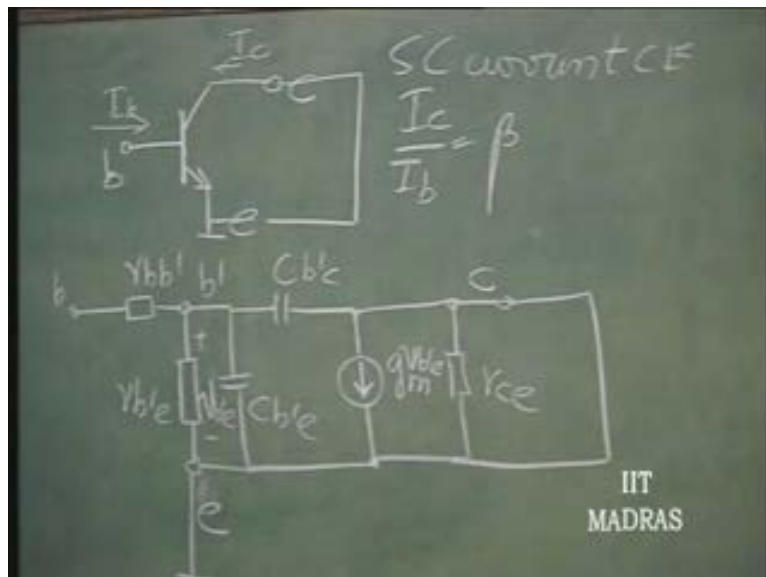 Ic
SC current CE
C
Ib
b
Ic
Ib
= β
e
rbb'
b'
Cb'c
C
b
+
rb'e
Vb'e
Cb'e
gmVb'e
rce
-
e
IIT
MADRAS